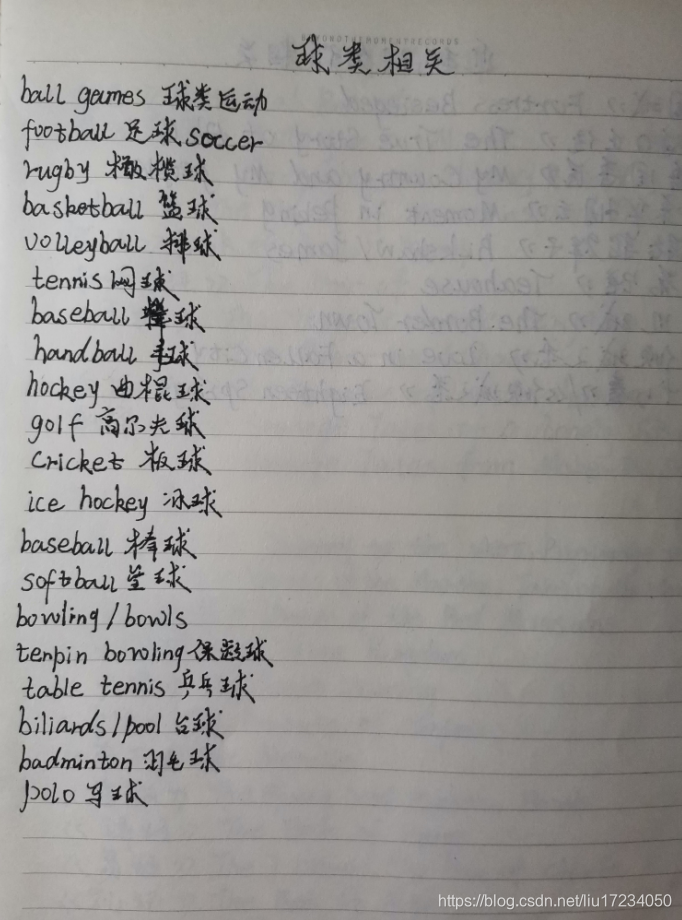 球类相关
ball games 球类运动
football 足球 soccer
rugby 橄榄球
basketball 篮球
volleyball 排球
tennis 网球
baseball 棒球
handball 手球
hockey 曲棍球
golf 高尔夫球
cricket 板球
ice hockey 冰球
baseball 棒球
softball 垒球
bowling/bowls
tenpin bowling 保龄球
table tennis 乒乓球
biliards/pool 台球
badminton 羽毛球
polo 马球
https://blog.csdn.net/liu17234050